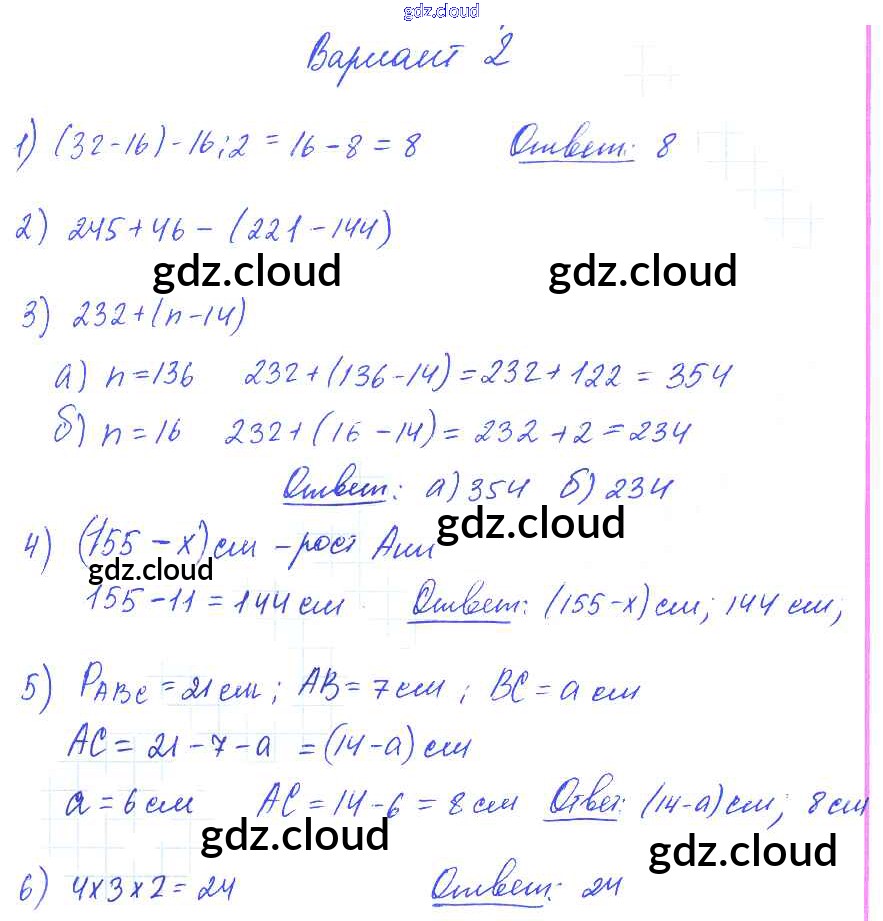 gdz.cloud
Вариант 2
1) (32-16)-16:2 = 16-8 = 8 Ответ: 8
2) 245+46-(221-144)
gdz.cloud gdz.cloud
3) 232+(n-14)
а) n=136 232+(136-14)=232+122=354
б) n=16 232+(16-14)=232+2=234
Ответ: а) 354 б) 234
gdz.cloud
4) (155-x) см - рост Ани
gdz.cloud
155-11=144 см. Ответ: (155-x) см; 144 см;
5) PABC = 21 см; AB = 7 см; BC = a см
AC = 21-7-a = (14-a) см
a = 6 см AC = 14-6 = 8 см Ответ: (14-a) см; 8 см
gdz.cloud gdz.cloud
6) 4x3x2=24 Ответ: 24